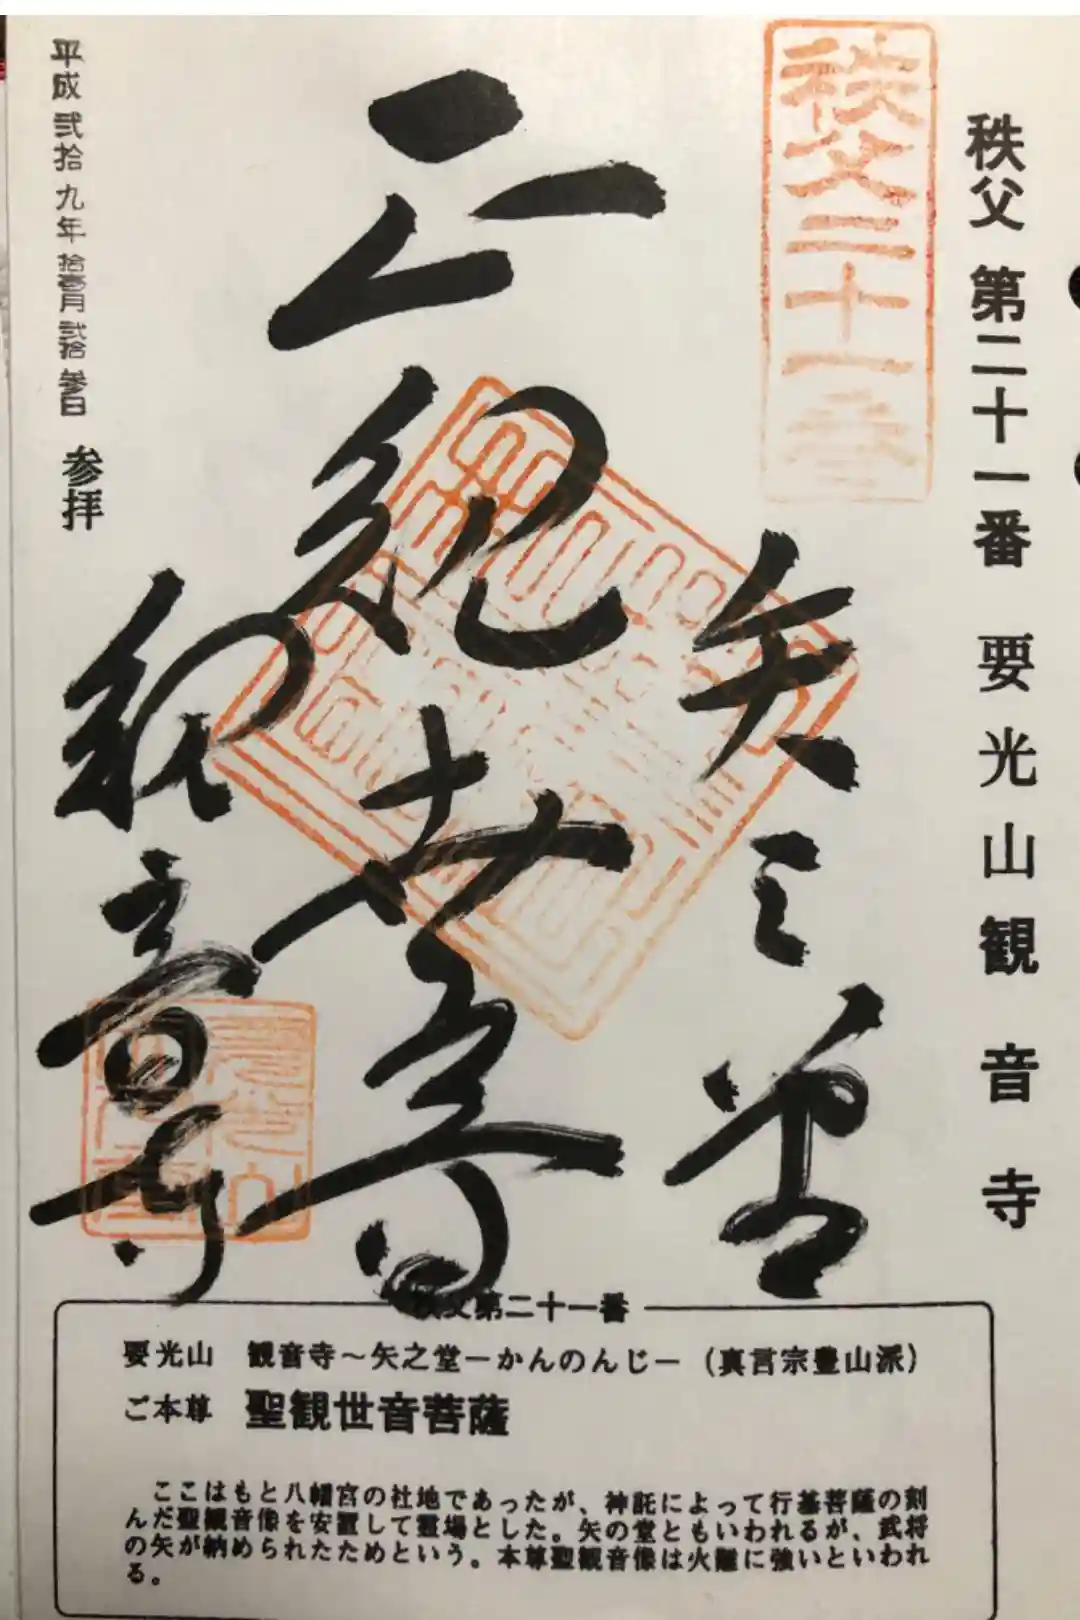 秩父 第二十一番 要光山観音寺
秩父二十一番
矢之堂
正観世音
観音寺
平成弐拾九年拾壱月弐拾参日 参拝
秩父第二十一番
要光山 観音寺～矢之堂－かんのんじ－（真言宗豊山派）
ご本尊 聖観世音菩薩
ここはもと八幡宮の社地であったが、神託によって行基菩薩の刻
んだ聖観音像を安置して霊場とした。矢の堂ともいわれるが、武将
の矢が納められたためという。本尊聖観音像は火難に強いといわれ
る。